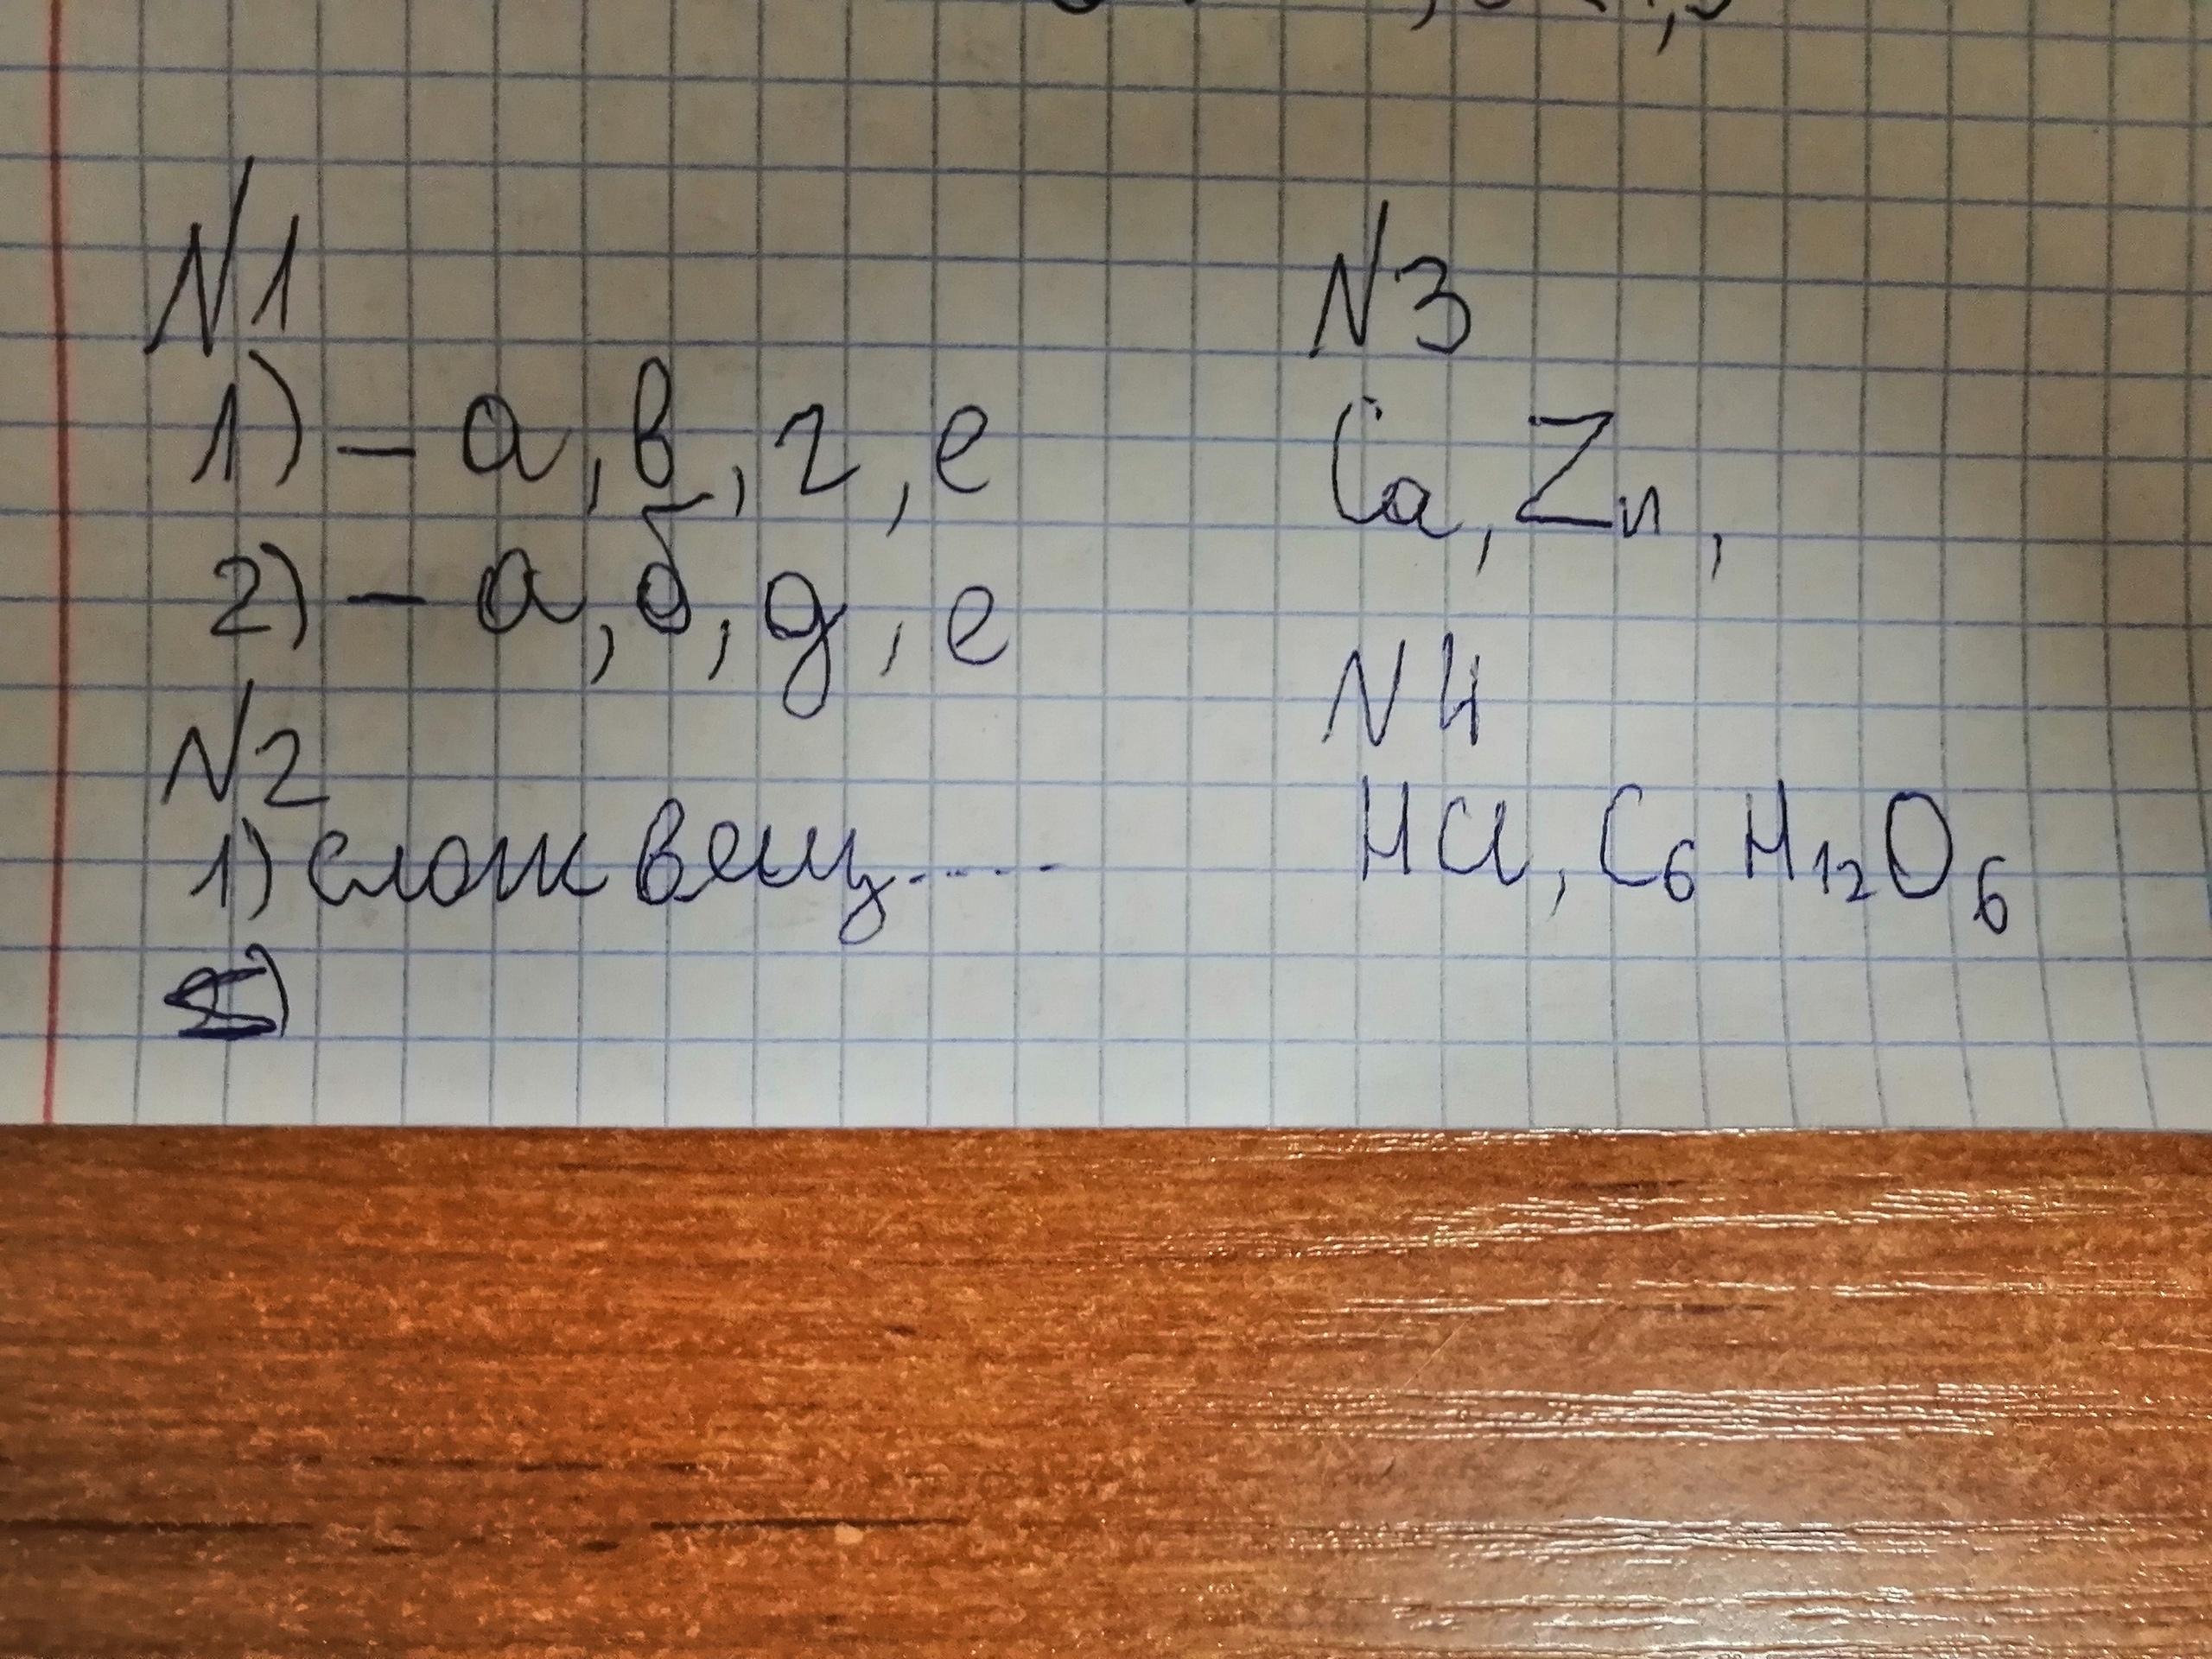 N1
1) – а, в, г, е
2) – а, б, д, е
N2
1) слож вещ......
N3
Ca, Zn,
N4
HCl, C₆H₁₂O₆